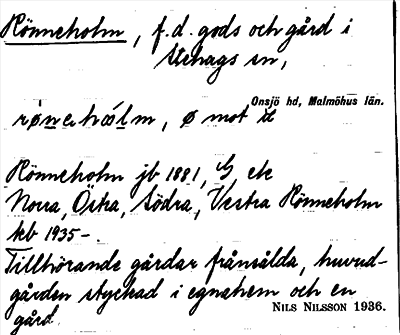 Rönneholm, f. d. gods och gård i
Stehags sn,
Onsjö hd, Malmöhus län.
Rönneholm jb 1881, G etc
Norra, Östra, Södra, Vestra Rönneholm
kb 1935-
Tillhörande gårdar frånsålda, huvud-
gården styckad i egnahem och en
gård.
NILS NILSSON 1936.